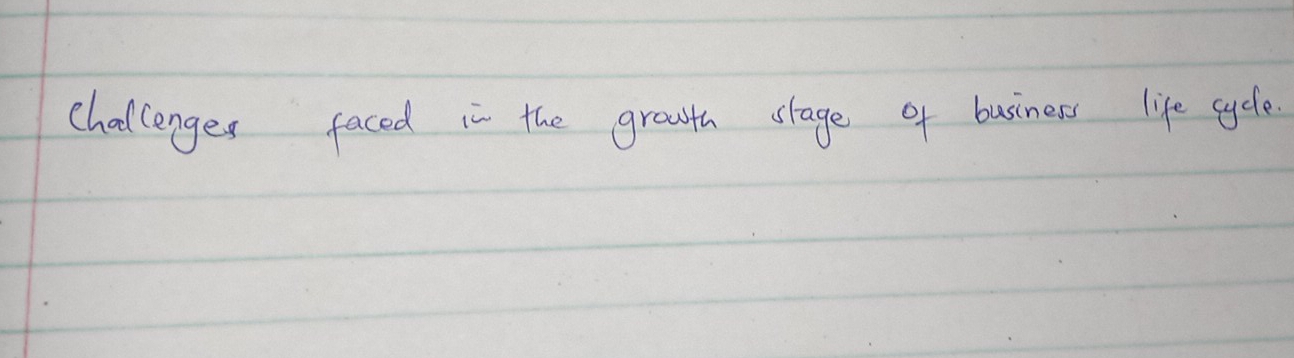 Challenges faced in the growth stage of business life cycle.